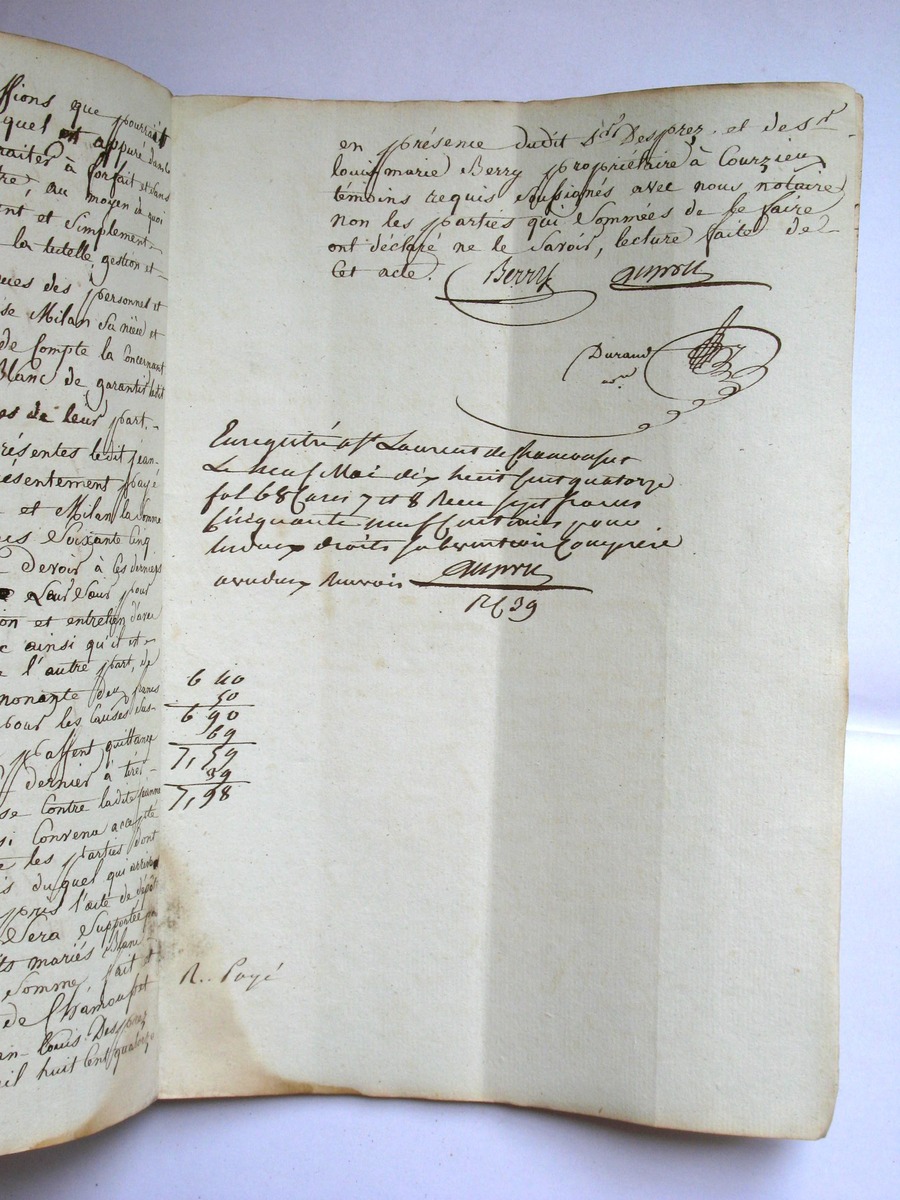 ssions que pourrait
quel et appuré dans le
traiter à forfait et sans
tre, au moyen de quoi
ent et simplement
la tutelle, gestion et
ques des personnes et
se Milan sa nièce et
de Compte la Concernant
Blanc de garantir ledit
es de leur part.
résentes ledit jean
présentement payé
et Milan la Somme
es Soixante Cinq
devoir à ces derniers
Leur Sour pour
on et entretien d'une
c ainsi qu'il est
l'autre part, de
nonante deux francs
pour les Causes sus-
passent quittance
dernier à tirer
se Contre ladite jeanne
si Convenu accepté
les parties dont
s duquel qui arrive
près l'acte de dépôt
Sera Supportée par
ts mariés Blanc
Somme, fait et
de Chamousset
an-Louis Desprez
il huit Cent quatorze
en présence dudit Sr Desprez, et de Sr
louis marie Berry propriétaire à Courzieu
témoins requis soussignés avec nous notaire
non les parties qui Sommées de le faire
ont déclaré ne le Savoir, lecture faite de
Cet acte.
Berry
Durand
Enregistré à St Laurent de Chamousset
Le neuf Mai dix huit Cent quatorze
fol 68 Cases 7 et 8 Recu sept francs
Cinquante neuf Centimes pour
les deux droits Subvention Comprise
a vu deux Renvois
Rl 39
6 40
50
6 90
69
7,59
39
7,98
R.. Payé